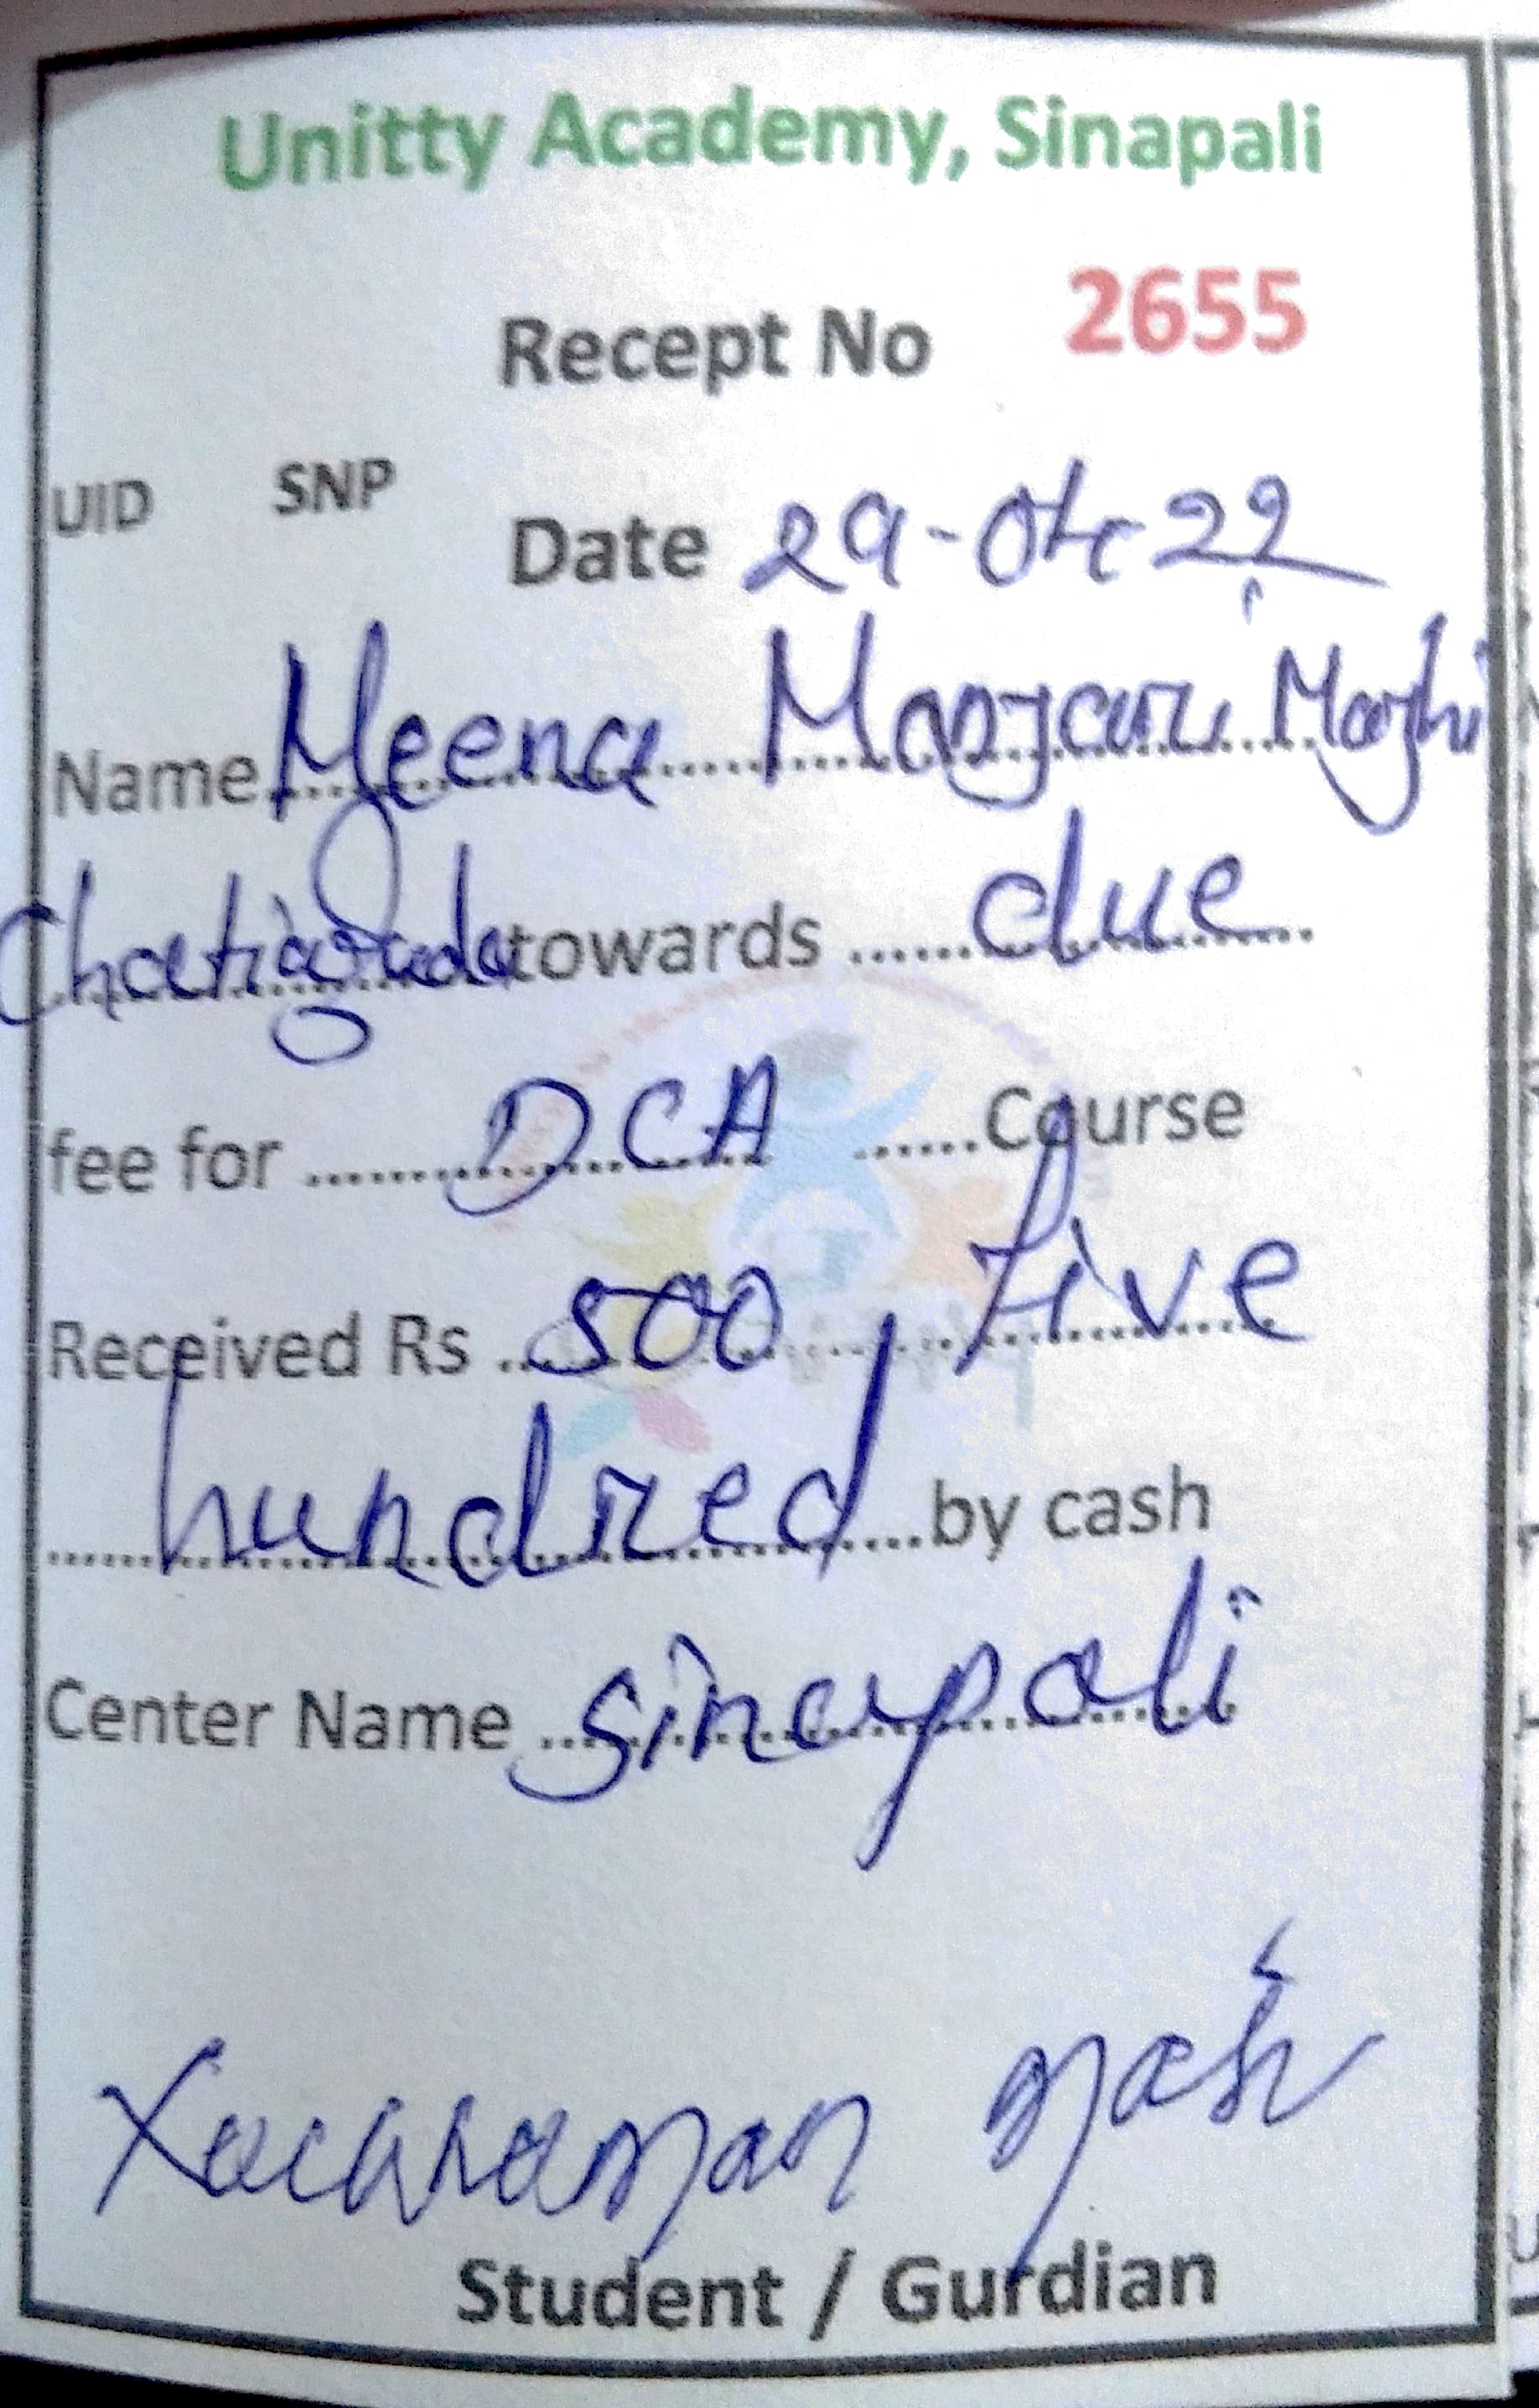 Unitty Academy, Sinapali
Recept No 2655
UID SNP
Date 29-04-22
Name Meena Manjari Majhi
Chatiguda towards ...... due
fee for ........ DCA ......Course
Received Rs ... 500, five
hundred ...by cash
Center Name ... Sinapali
Student / Gurdian